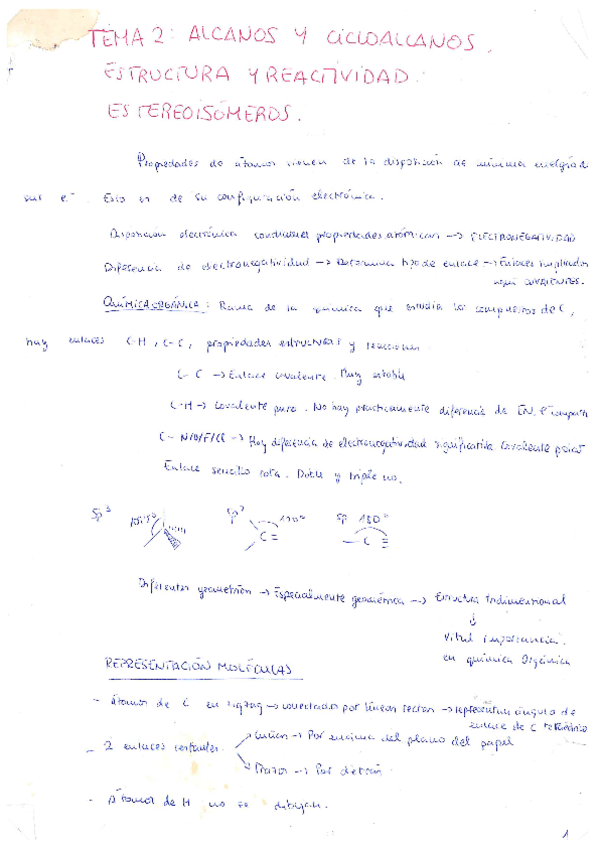 TEMA 2: ALCANOS Y CICLOALCANOS.
ESTRUCTURA Y REACTIVIDAD.
ESTEREOISÓMEROS.
Propiedades de átomos vienen de la disposición de mínima energía de
sus e⁻. Esto es de su configuración electrónica.
Disposición electrónica condiciones propiedades atómicas → ELECTRONEGATIVIDAD
Diferencia de electronegatividad → Determina tipo de enlace → Enlaces implicados
aquí COVALENTES.
QUÍMICA ORGÁNICA: Rama de la química que estudia los compuestos de C,
hay enlaces C-H, C-C, propiedades estructurales y reacciones
C-C → Enlace covalente. Muy estable
C-H → Covalente puro. No hay prácticamente diferencia de EN.
C-N/O/F/Cl → Hay diferencia de electronegatividad significativa covalente polar
Enlace sencillo rota. Doble y triple no.
sp³ sp² 120° sp 180°
C = C ≡
Diferentes geometrías → Especialmente geométrica → Estructura tridimensional
↓
Vital importancia
en química orgánica
REPRESENTACIÓN MOLÉCULAS
- Átomos de C en zigzag → conectados por líneas rectas → representan ángulo de
enlace de C tetraédrico
- 2 enlaces restantes Cuñas → Por encima del plano del papel
Trazos → Por detrás
- Átomos de H no se dibujan.
1